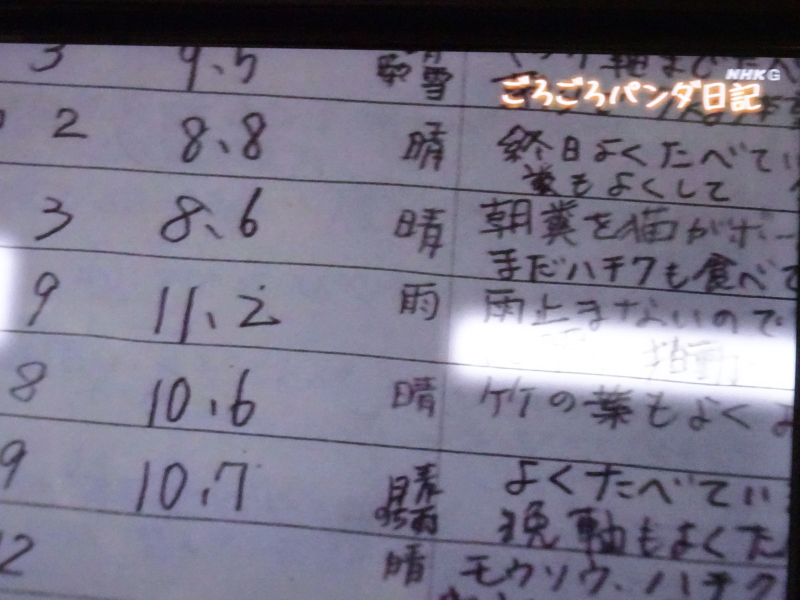 NHK G
ごろごろパンダ日記
3 9.5 雪
2 8.8 晴 終日よくたべてい
糞もよくして
3 8.6 晴 朝糞を猫がボー
まだハチクも食べて
9 11.2 雨 雨止まないので
8 10.6 晴 竹の葉もよくよ
9 10.7 晴 よくたべてい
軸もよくた
2 晴 モウソウ、ハチク